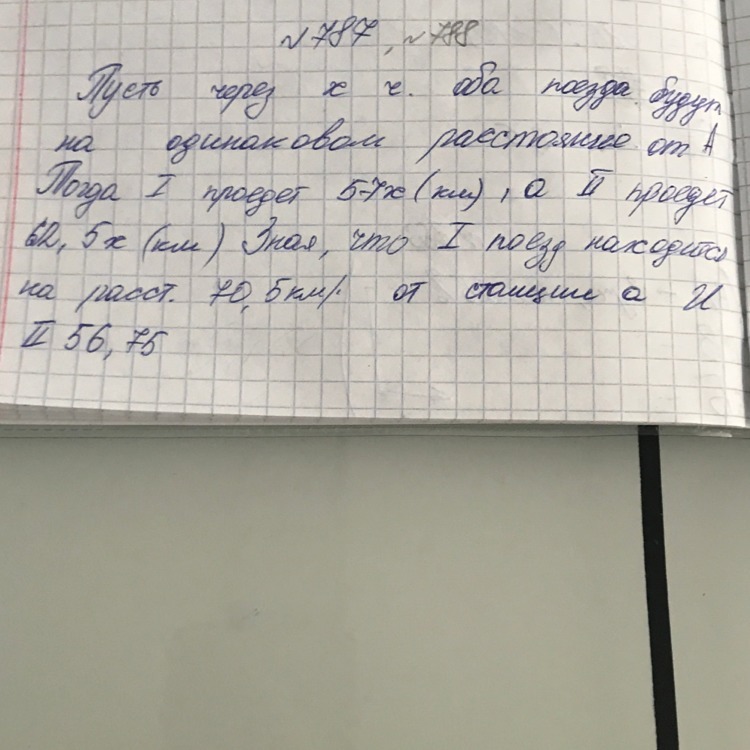 №787, №788
Пусть через x ч. оба поезда будут
на одинаковом расстояние от A
Тогда I проедет 57x (км), а II проедет
62,5x (км) Зная, что I поезд находится
на расст. 70,5км от станции а и
II 56,75